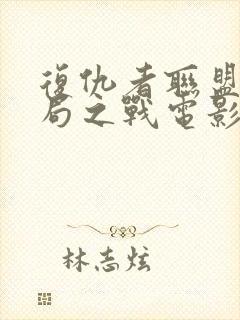 復仇者聯盟
局之戰電影
林志炫